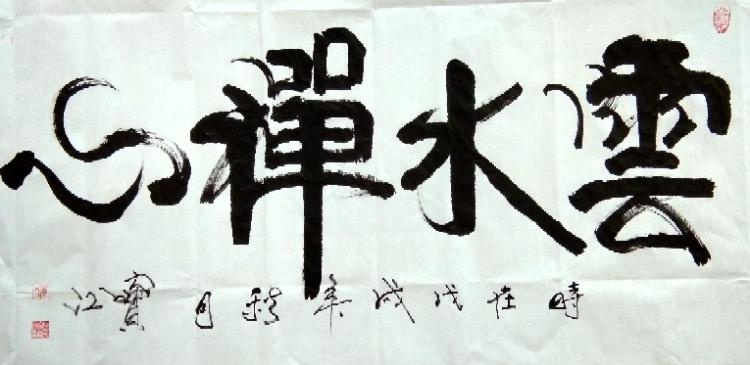 雲水禪心
時在戊戌年秋月寶江